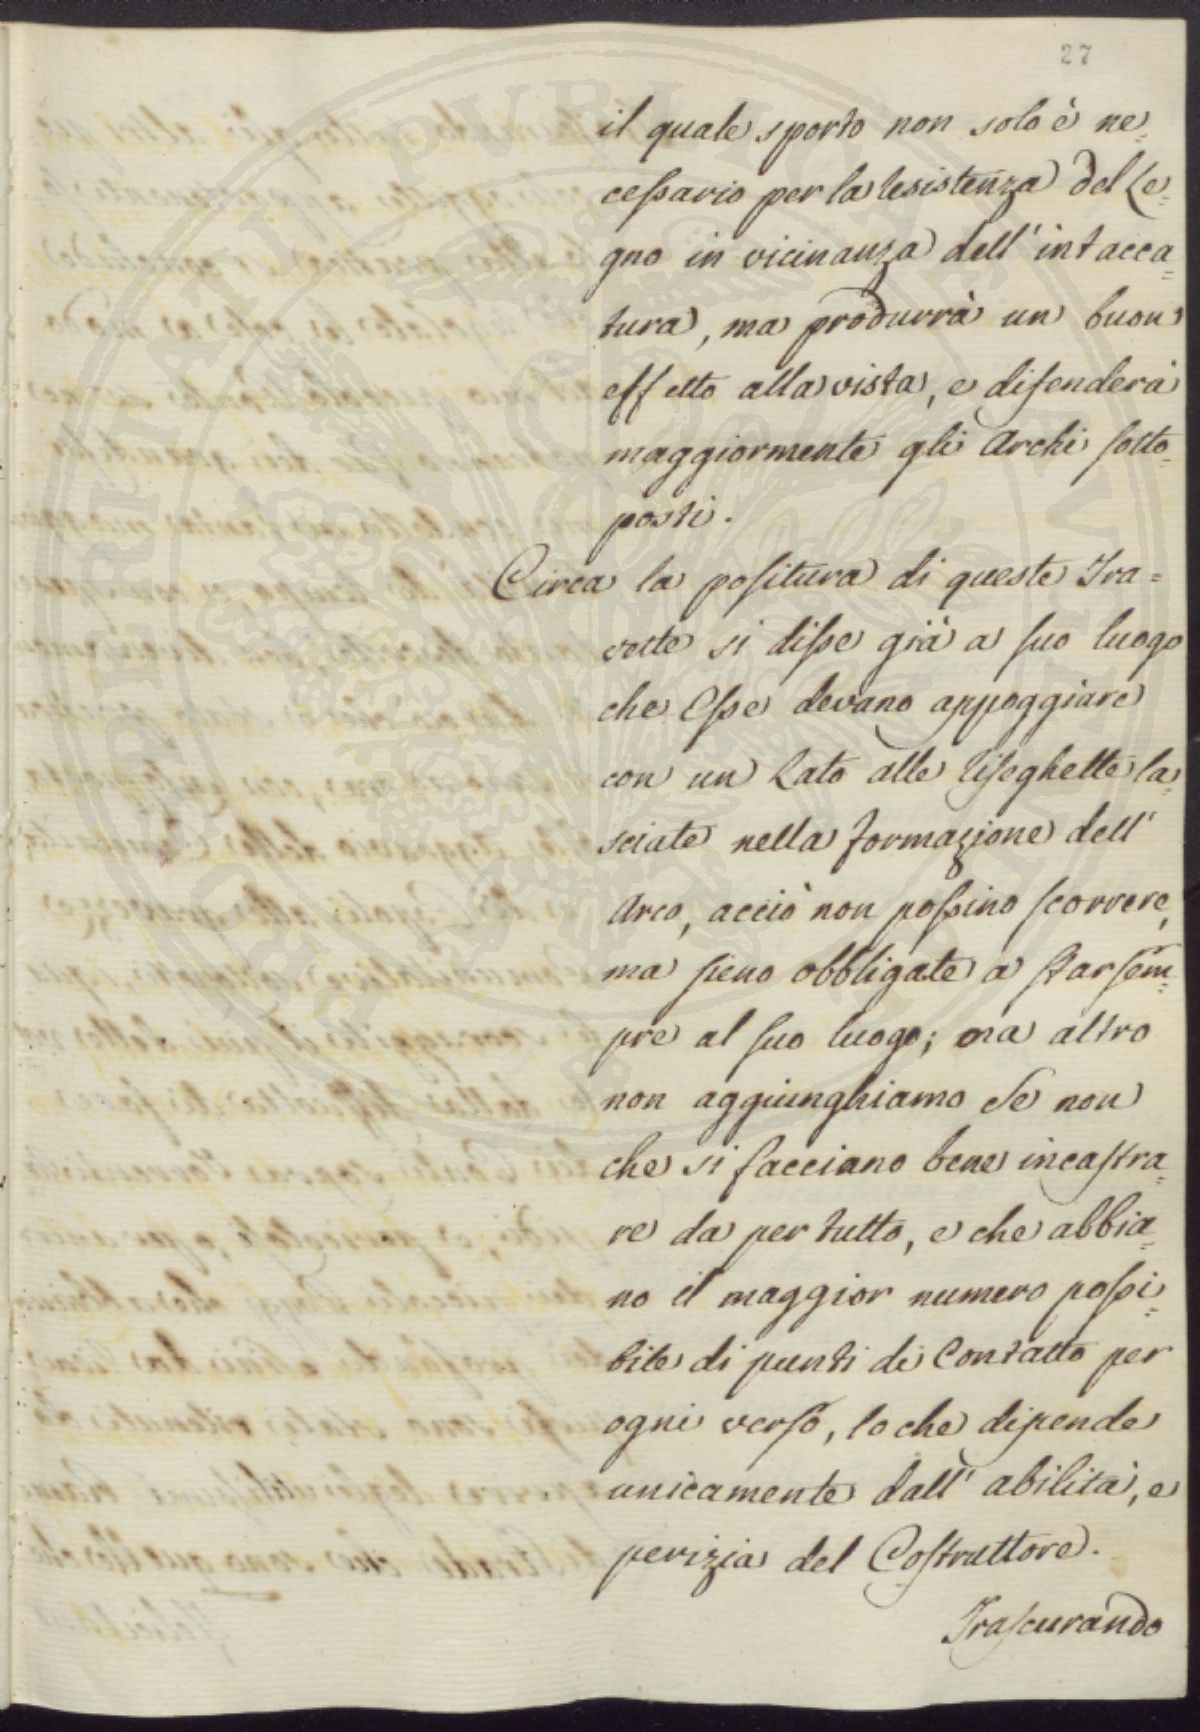 27
il quale sporto non solo è ne=
cessario per la resistenza del Le=
gno in vicinanza dell' intacca=
tura, ma produrrà un buon
effetto alla vista, e difenderà
maggiormente gli Archi sotto=
posti.
Circa la positura di queste Tra=
vette si disse già a suo luogo
che Esse devano appoggiare
con un Lato alle riseghette la=
sciate nella formazione dell'
Arco, acciò non possino scorrere,
ma sieno obbligate a star sem=
pre al suo luogo; ora altro
non aggiunghiamo se non
che si facciano bene incastra=
re da per tutto, e che abbia=
no il maggior numero possi=
bile di punti di Contatto per
ogni verso, lo che dipende
unicamente dall' abilità, e
perizia del Costruttore.
Trascurando